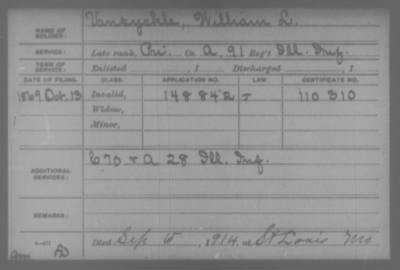 NAME OF SOLDIER: Vanzychle, William L.
SERVICE: Late rank, Pri. Co. A, 91 Reg't Ill. Inf.
TERM OF SERVICE: Enlisted , 1 Discharged , 1
DATE OF FILING. CLASS. APPLICATION NO. LAW. CERTIFICATE NO.
1869 Oct. 13 Invalid, 148 842 110 310
Widow,
Minor,
ADDITIONAL SERVICES: A 28 Ill. Inf.
REMARKS:
Died Sep 1914, at St Louis Mo